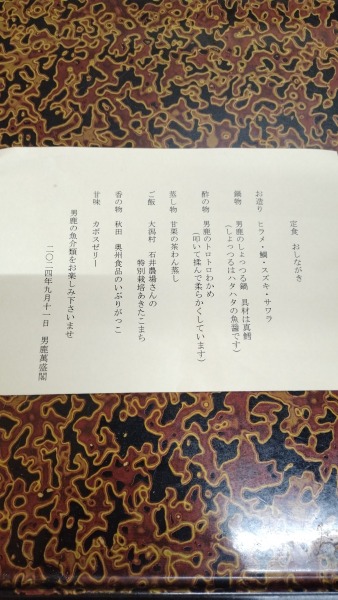 定食　おしながき
お造り　ヒラメ・鯛・スズキ・サワラ
鍋物　男鹿のしょっつる鍋　具材は真鯛
（しょっつるはハタハタの魚醤です）
酢の物　男鹿のトロトロわかめ
（叩いて揉んで柔らかくしています）
蒸し物　甘栗の茶わん蒸し
ご飯　大潟村　石井農場さんの
特別栽培あきたこまち
香の物　秋田　奥州食品のいぶりがっこ
甘味　カボスゼリー
男鹿の魚介類をお楽しみ下さいませ
二〇二四年九月十一日　男鹿萬盛閣